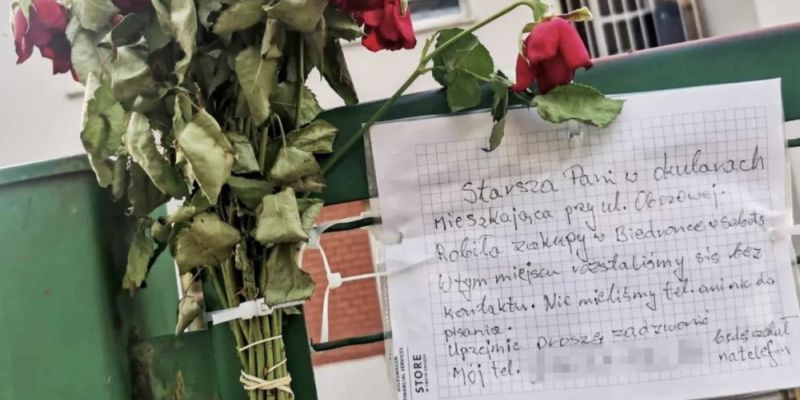 Starsza Pani w okularach
Mieszkająca przy ul. Obozowej.
Robiła zakupy w Biedronce w sobotę
W tym miejscu rozstaliśmy się bez
kontaktu. Nie mieliśmy tel. ani nic do
pisania.
Uprzejmie proszę zadzwonić
będę czekał
Mój tel.
na telefon
VOLKSWAGEN
FINANCIAL SERVICES
STORE